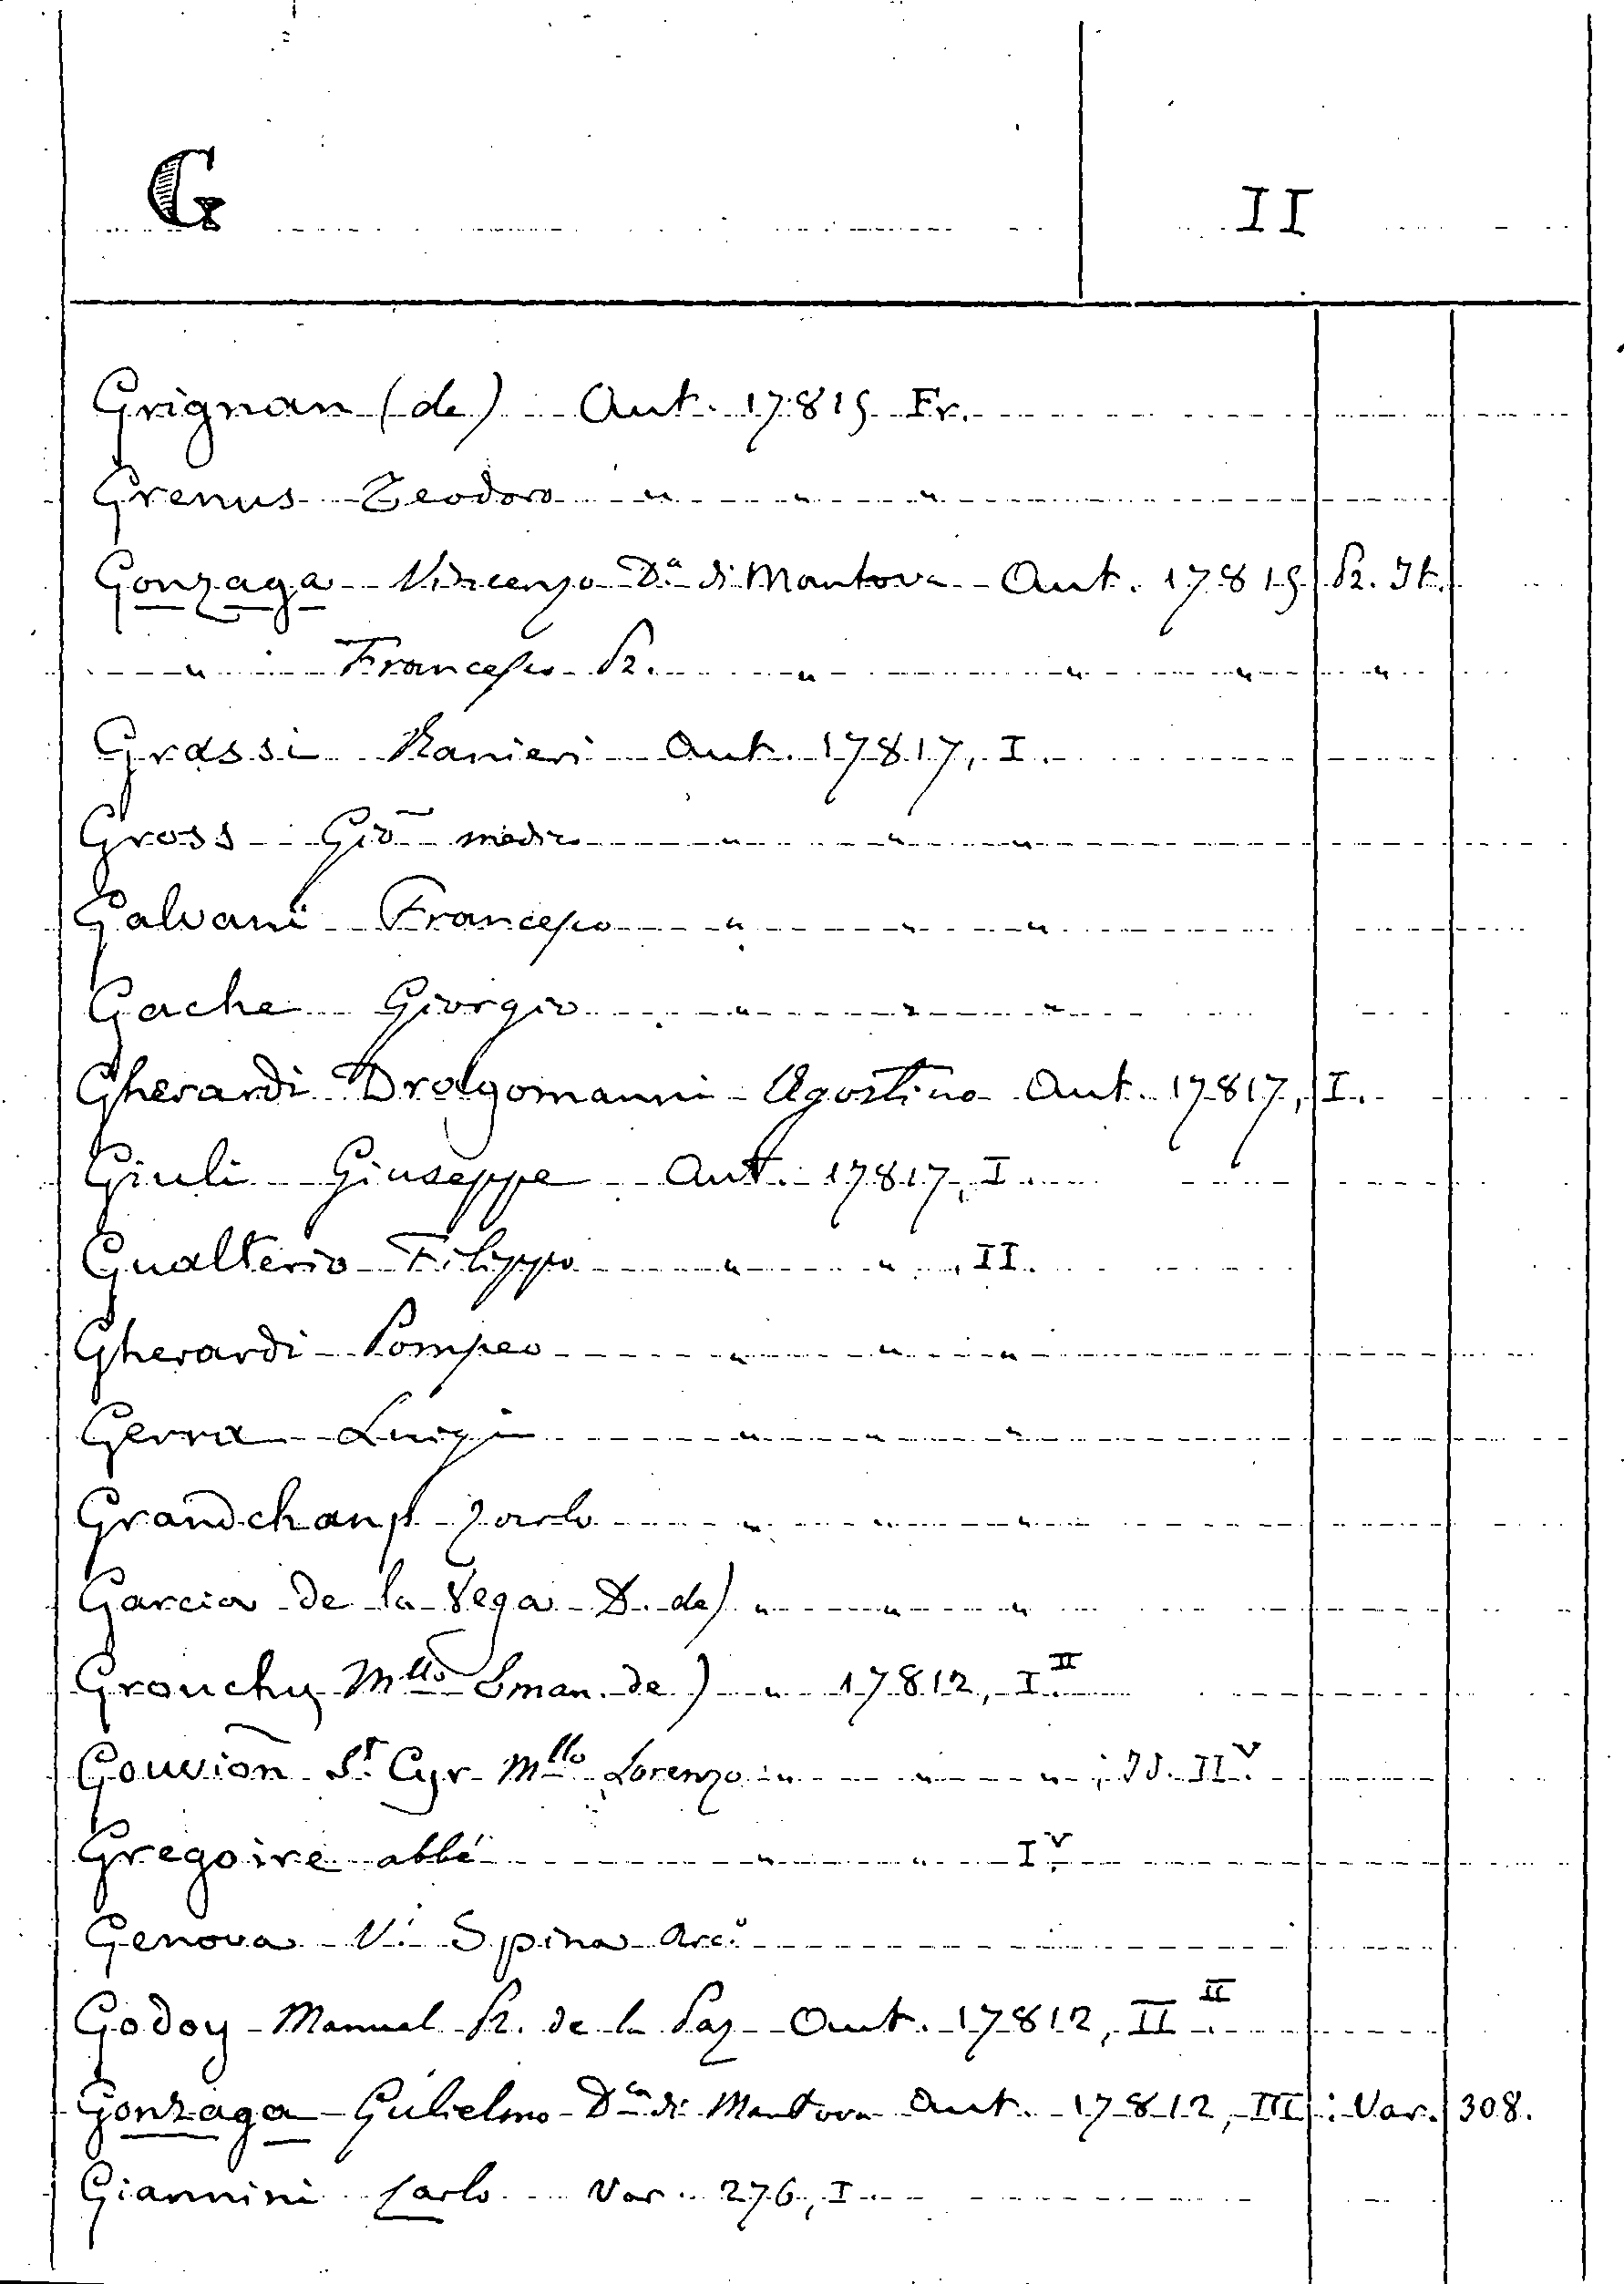 G II
Grignan (de) Aut. 17815 Fr.
Grenus Teodoro " " "
Gonzaga Vincenzo D.a di Mantova Aut. 17815 Pr. It.
" Francesco Pr. " " " "
Grassi Ranieri Aut. 17817, I.
Gross Gio medico " " "
Galvani Francesco " " "
Gache Giorgio " " "
Gherardi Dragomanni Agostino Aut. 17817, I.
Giuli Giuseppe Aut. 17817, I.
Gualterio Filippo " " , II.
Gherardi Pompeo " " "
Gerra Luigi " " "
Grandchamp Carlo " " "
Garcia de la Vega D. de) " " "
Grouchy Mllo Eman. de) " 17812, I.II
Gouvion St. Cyr Mllo Lorenzo " " " ; Id. II.v
Gregoire abbé " " I.v
Genova V. Spina Arc.o
Godoy Manuel Pr. de la Paz Aut. 17812, II.II
Gonzaga Gulielmo D.ca di Mantova Aut. 17812, III : Var. 308.
Giannini Carlo Var. 276, I.